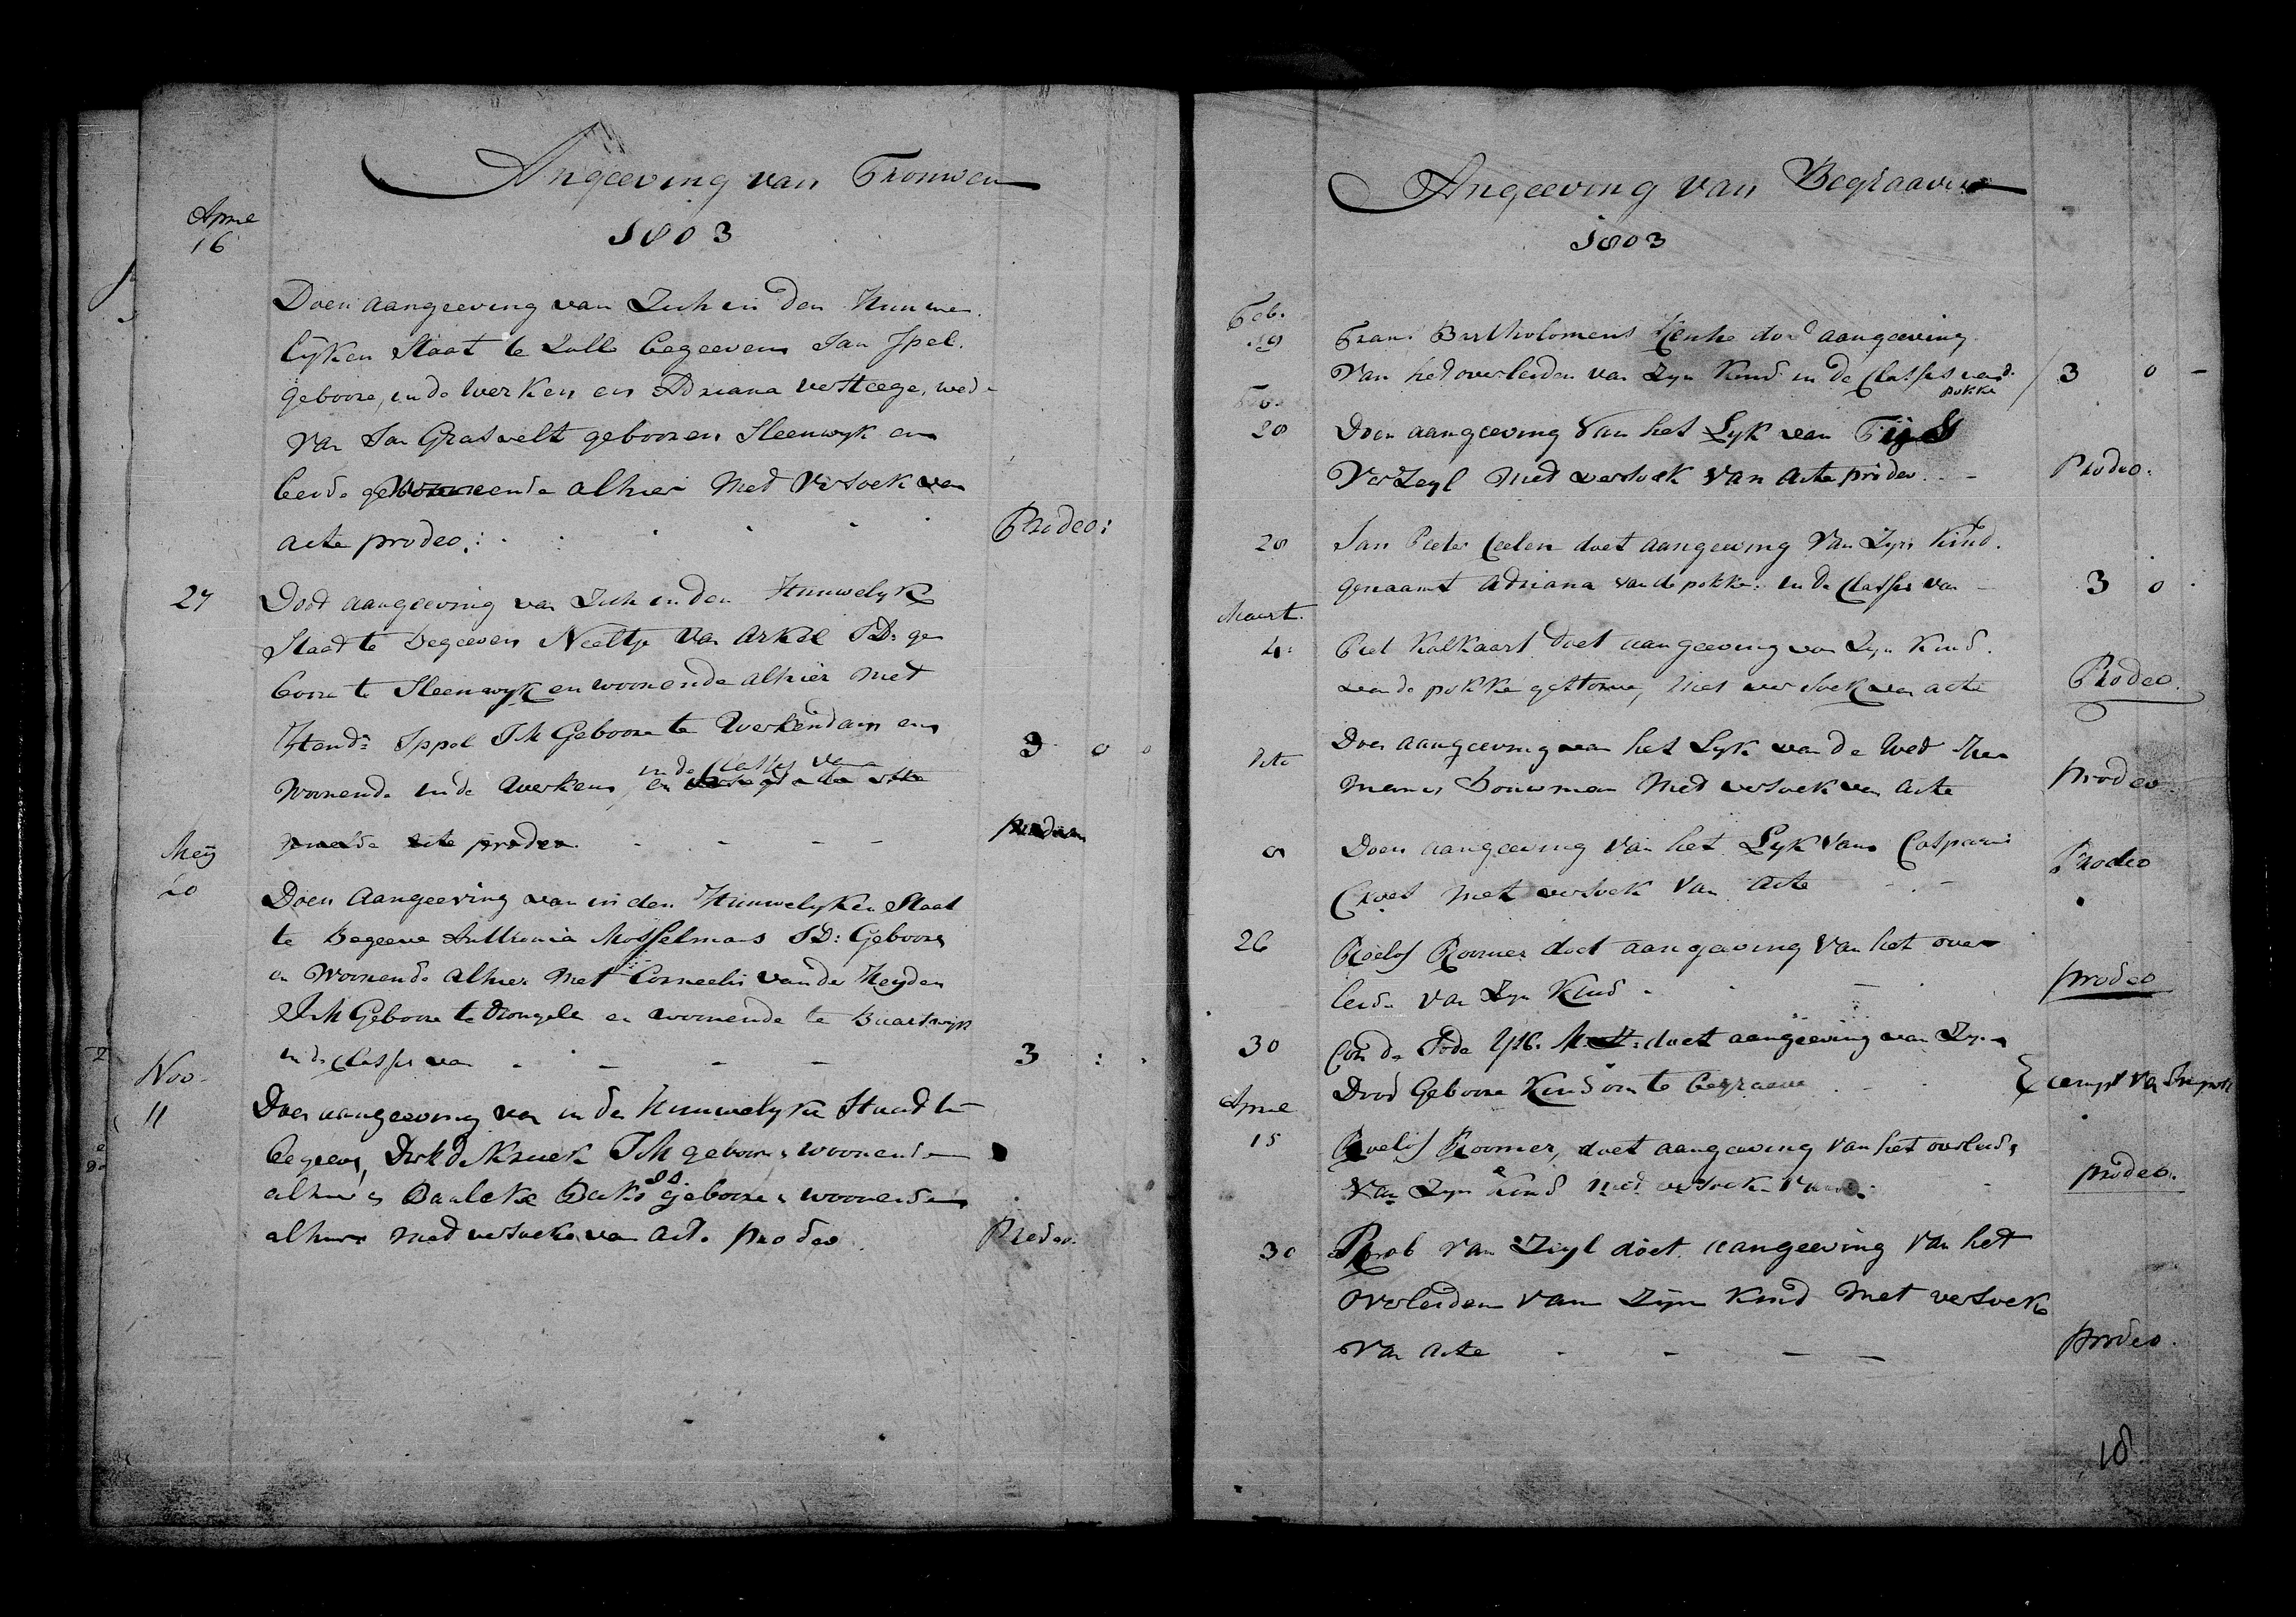 Angeeving van Trouwen
1803
Aprel
16
Doen aangeeving van Zich in den Huuwe
lijken Staat te Zulle begeeven Jan Ippel
geboore, in de werken en Adriana versteege, wed
van Jan Grasvelt gebooren Sleenwyk en
beide woonende alhier Met Versoek van
acte prodeo: Prodeo:
27 Doed aangeeving van Zich in den Huuwelyk
Staad te begeeven Neeltje Van Arkel JD: ge
boore te Sleenwyk en woonende alhier met
Ijsand: Ippel JM Geboore te Werkendam en
Woonende in de Werken, in de Classis van 3 0 0
acte prodeo
Meÿ
20
Doen Aangeeving van in den Huuwelyken Staat
te Begeeve Anthonia Mosselmans JD: Geboore
en Woonende alhier Met Corneelis van der Heyden
JM Geboore te drongele en woonende te Baartwyk
in de Classis van 3 : .
Nov.
11
Doen aangeeving van in de Huuwelyke Staad te
begeeve, Dirk d Kruek JM geboore & woonende
alhier & Baaleke Baks JD geboore & woonende
alhier med versoeke van acte pro deo. Prodeo.
Angeeving van Begraaven
1803
Feb.
19 Frans Bartholomeus Henke doed aangeeving
Van hed overleiden van Zyn Kind in de Classis van d. / 3 0 -
pokke
28 Doen aangeeving Van het Lyk van Tijs
VerZeyl Med versoek Van acte prodeo - Prodeo.
28 Jan Peeter Ceelen doet aangeeving Van Zyn Kind.
genaamt Adriana van de pokke. in de Classis van - 3 0
Maert.
4: Piet Kalkaart doet aangeeving van Zyn Kind.
van de pokke gestorve, Met versoek van acte Prodeo.
dito Doen aangeeving van het Lyk van de Wed Her
manus Bouwman Med versoek van Acte prodeo
8 Doen aangeeving Van het Lyk Van Casparis
Croes Met versoek Van Acte Prodeo
26 Roelof Roomer doet aangeeving Van het over
leide van Zyn Kind prodeo
30 Cor: de doet aangeeving van Zyn
Dood Geboore Kind om te begraave Exempt van Impost
Aprel
15 Roelof Roomer, doet aangeeving van het overleide
Van Zyn Kind med versoek prodeo.
30 van Zeyl doet aangeeving Van het
Overleiden van Zyn Kind Met versoek
Van acte - - - - prodeo.
18